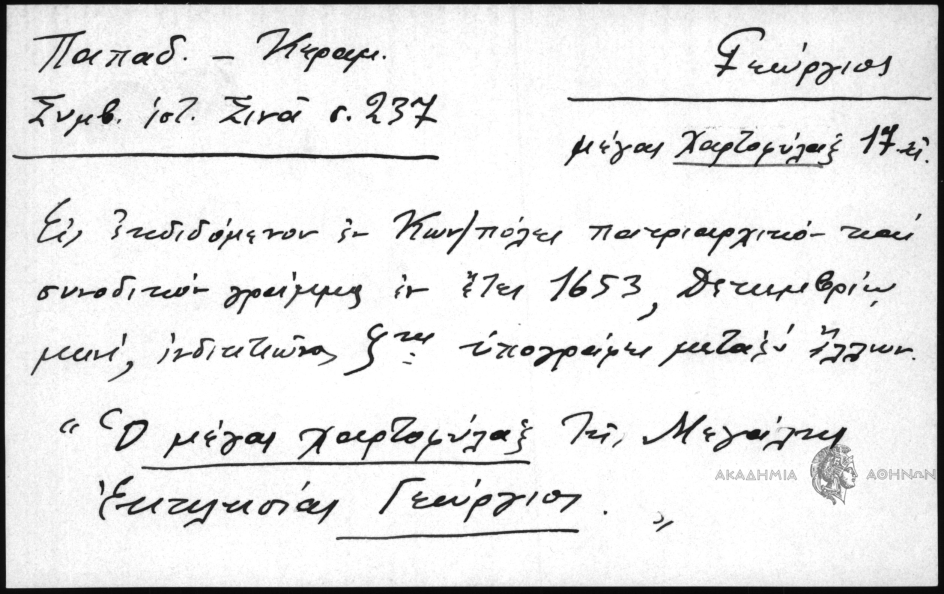 Παπαδ. – Κεραμ.
Συμβ. ἱστ. Σινᾶ σ. 237
Γεώργιος
μέγας χαρτοφύλαξ 17 αἰ.
Εἰς ἐκδιδόμενον ἐν Κων/πόλει πατριαρχικὸν καὶ
συνοδικὸν γράμμα ἐν ἔτει 1653, Δεκεμβρίῳ
μηνί, ἰνδικτιῶνος ζτης ὑπογράφει μεταξὺ ἄλλων.
“ Ὁ μέγας χαρτοφύλαξ τῆς Μεγάλης
Ἐκκλησίας Γεώργιος. „
ΑΚΑΔΗΜΙΑ ΑΘΗΝΩΝ